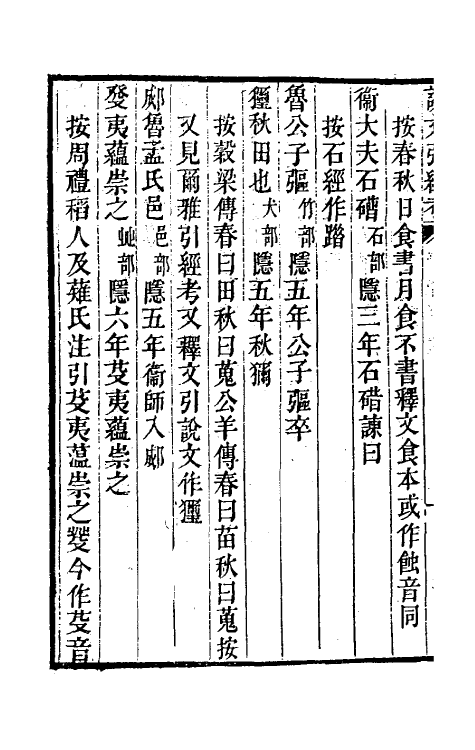 按春秋日食書月食不書釋文食本或作蝕音同
衞大夫石碏石部隱三年石碏諫曰
按石經作踖
魯公子彄竹部隱五年公子彄卒
玃秋田也犬部隱五年秋獮
按穀梁傳春曰田秋曰蒐公羊傳春曰苗秋曰蒐按
又見爾雅引經考又釋文引說文作玃
郕魯孟氏邑邑部隱五年衞師入郕
癹夷蘊崇之癶部隱六年芟夷蘊崇之
按周禮稻人及薙氏注引芟夷薀崇之癹今作芟音